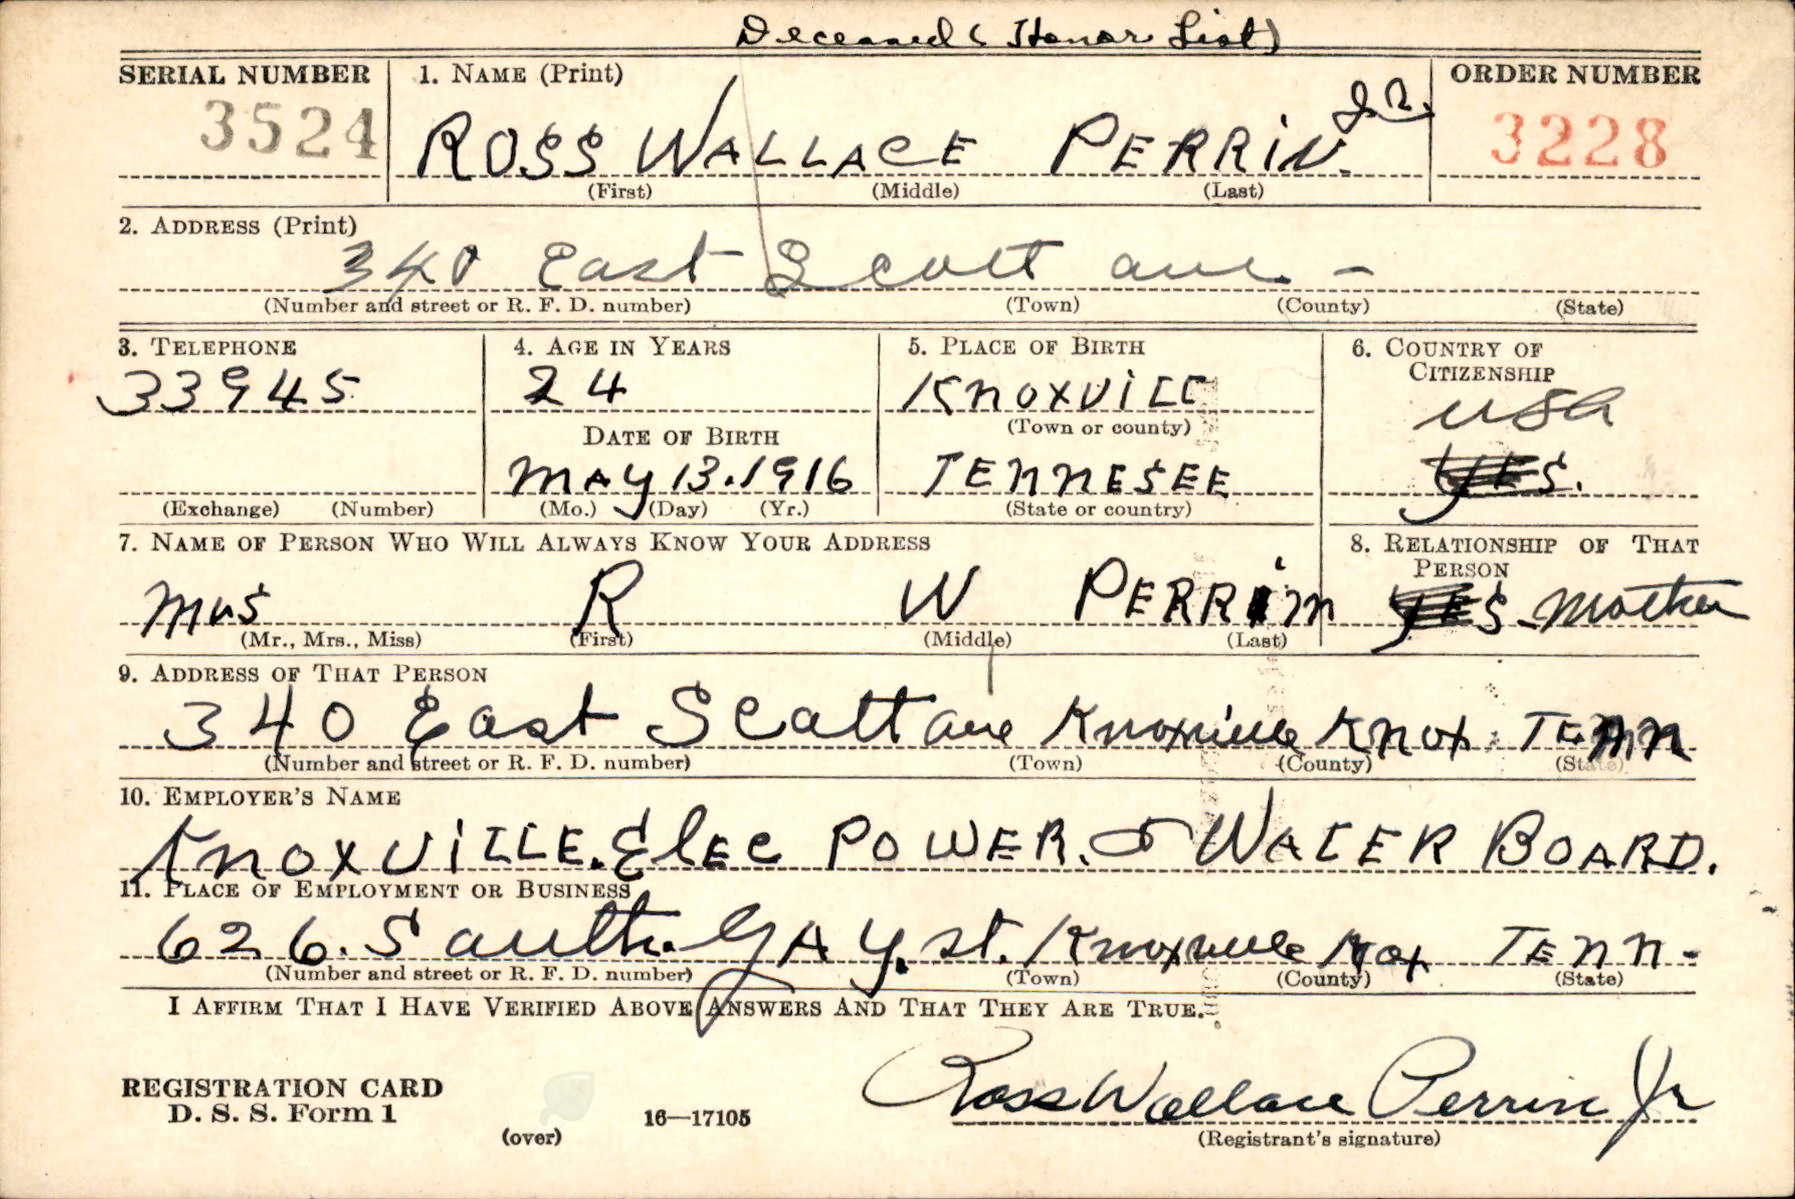 Deceased (Honor List)
SERIAL NUMBER 1. NAME (Print) ORDER NUMBER
3524 ROSS WALLACE PERRIN. JR. 3228
(First) (Middle) (Last)
2. ADDRESS (Print)
340 East Scott ave -
(Number and street or R. F. D. number) (Town) (County) (State)
3. TELEPHONE 4. AGE IN YEARS 5. PLACE OF BIRTH 6. COUNTRY OF CITIZENSHIP
33945 24 KNOXVILL USA
(Town or county)
DATE OF BIRTH
MAY 13.1916 TENNESEE YES.
(Exchange) (Number) (Mo.) (Day) (Yr.) (State or country)
7. NAME OF PERSON WHO WILL ALWAYS KNOW YOUR ADDRESS 8. RELATIONSHIP OF THAT PERSON
MRS R W PERRIN YES - Mother
(Mr., Mrs., Miss) (First) (Middle) (Last)
9. ADDRESS OF THAT PERSON
340 East Scott ave Knoxville Knox TENN
(Number and street or R. F. D. number) (Town) (County) (State)
10. EMPLOYER'S NAME
KNOXVILLE. Elec POWER. & WATER BOARD.
11. PLACE OF EMPLOYMENT OR BUSINESS
626. South GAY. St. Knoxville Knox TENN-
(Number and street or R. F. D. number) (Town) (County) (State)
I AFFIRM THAT I HAVE VERIFIED ABOVE ANSWERS AND THAT THEY ARE TRUE.
Ross Wallace Perrin Jr
REGISTRATION CARD
D. S. S. Form 1
(over) 16—17105 (Registrant's signature)